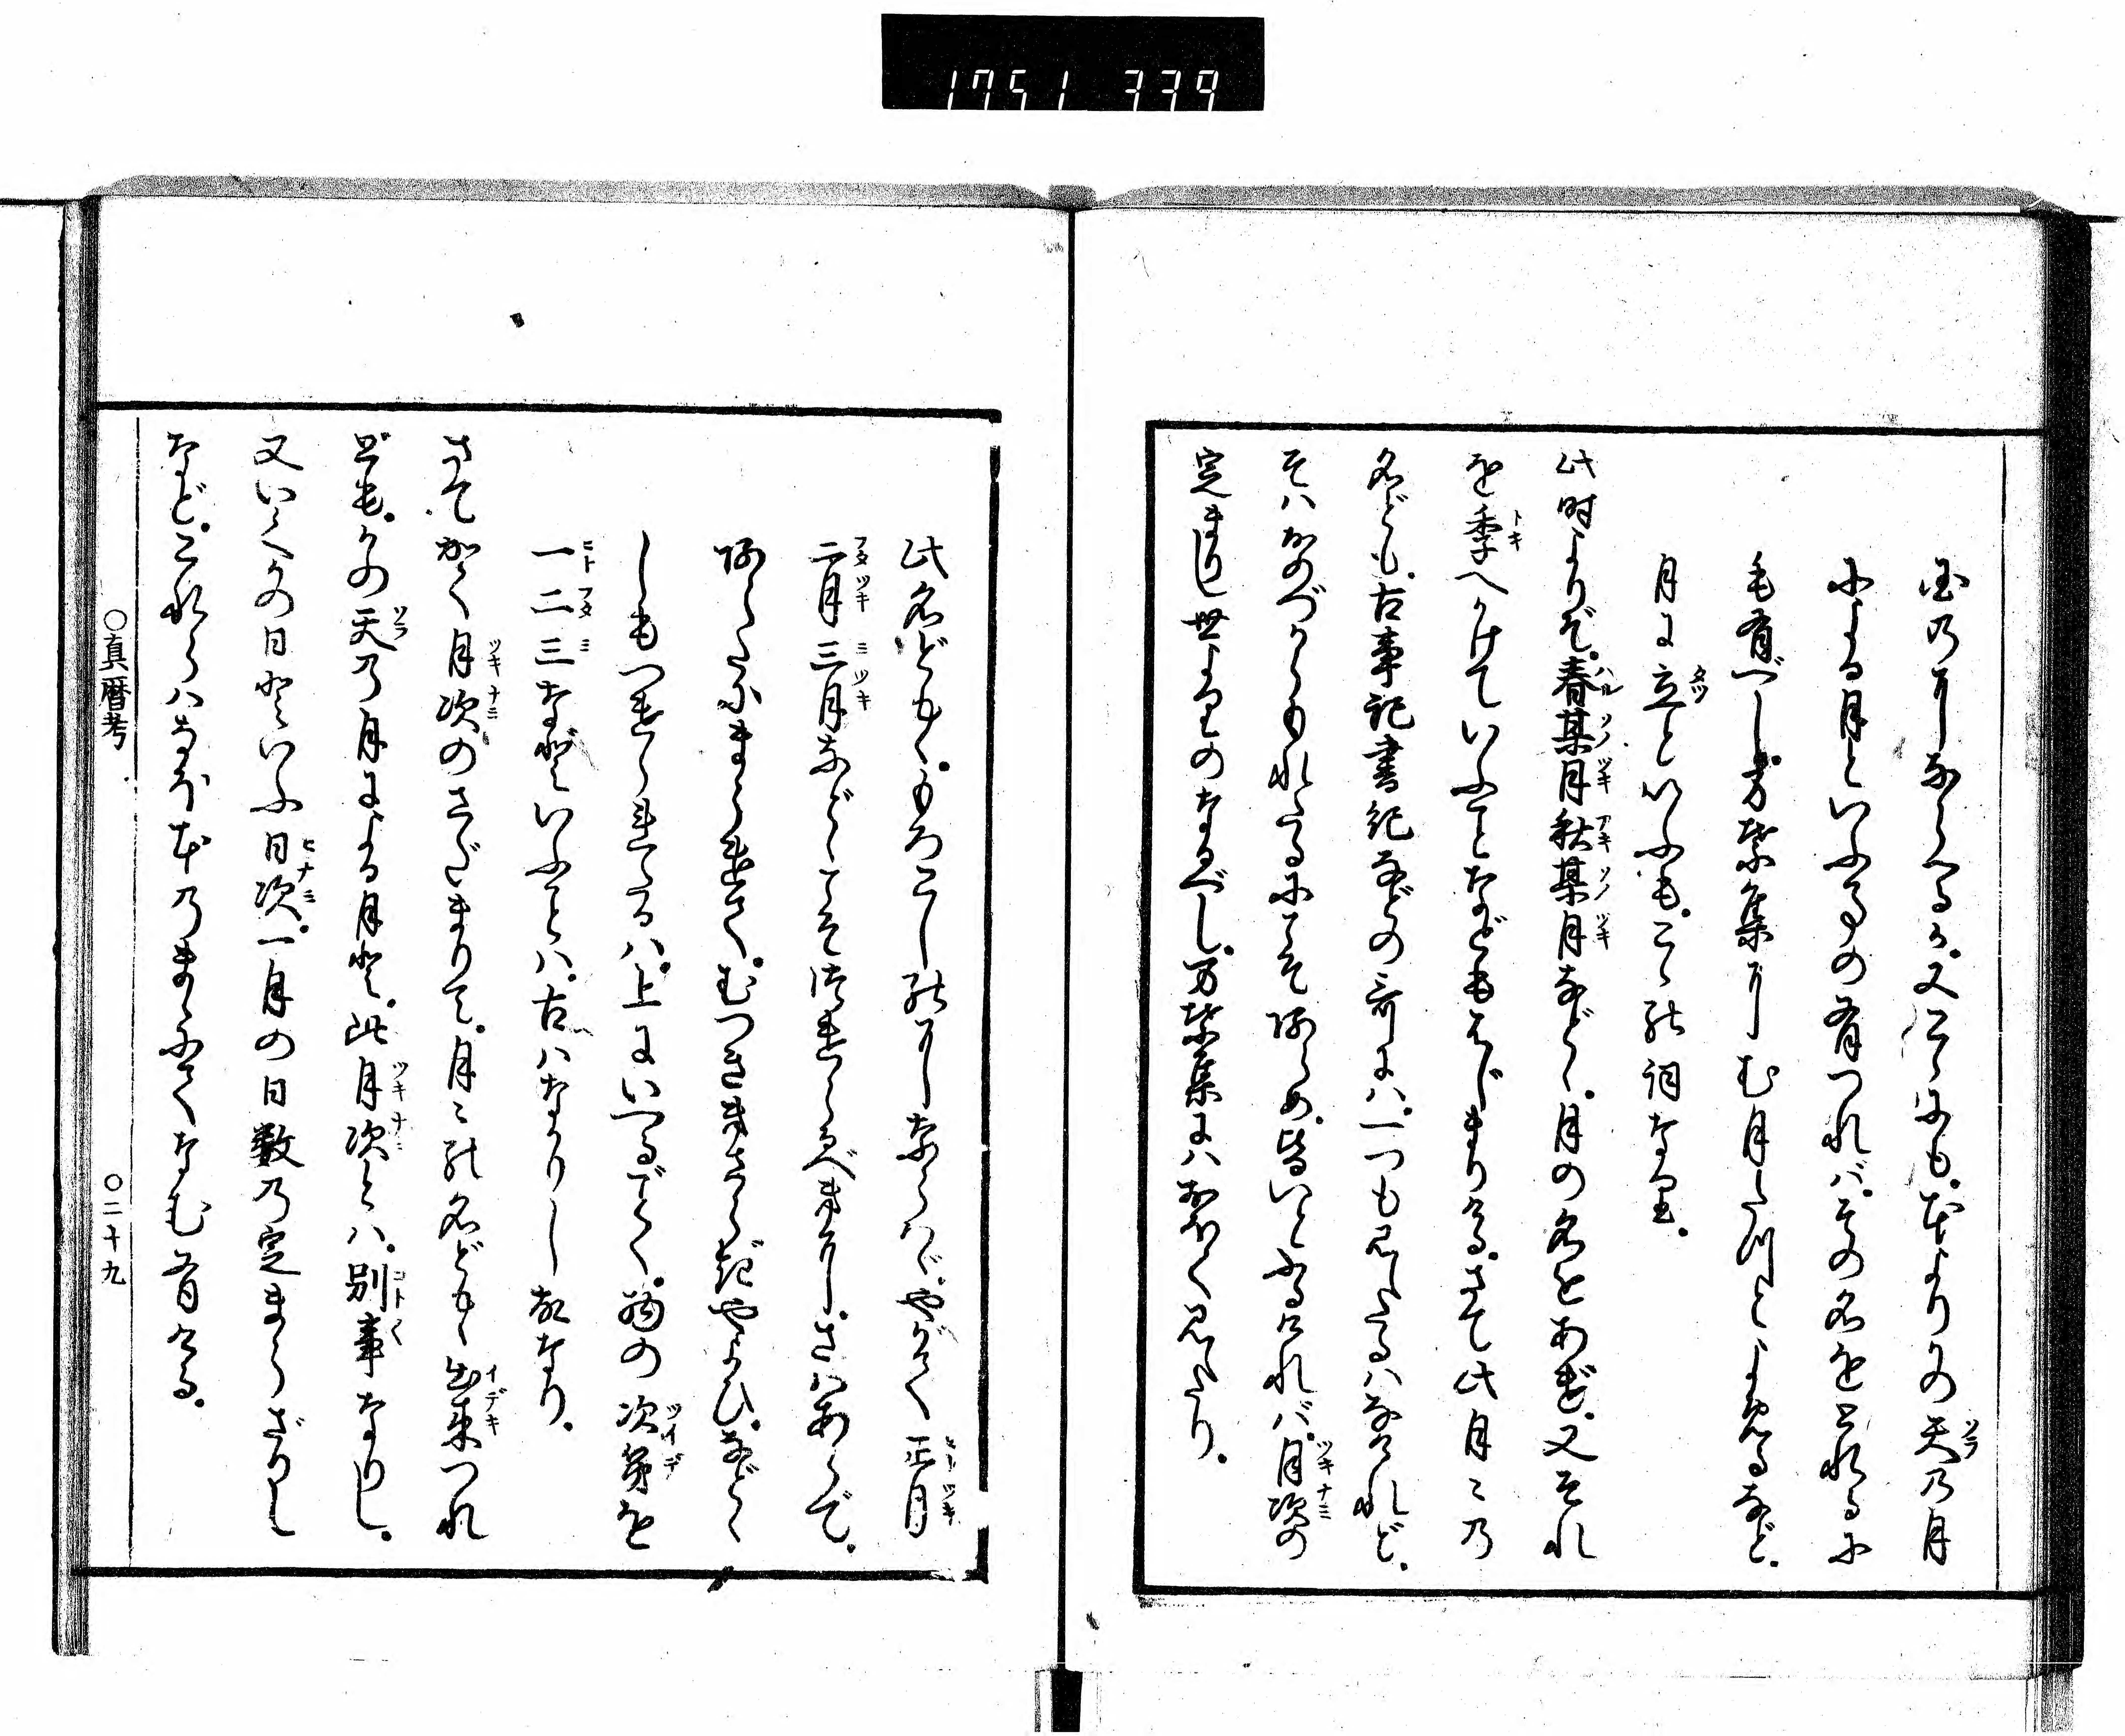 1751 339
国のにならへるか。又こゝにも。本よりかの天の月
による月といふものの有つれバ。その名をとれるに
も有べし。万葉集に む月たつとよめるなど。
月に立といふも。こゝの詞なり。
此時よりぞ。春某月秋某月など。月の名をあげ。又それ
を季へかけていふことなどもはじまりける。さて此月〻の
名ども。古事記書紀などの哥にハ。一つも見えたるハなけれど。
そハおのづからもれたるにこそあらめ。皆いとふるけれバ。月次の
定まりし世よりのなるべし。万葉集にハおほく見えたり。
此名ども。もろこしのにならハゞ。やがて 正月
二月 三月などこそつけらるべきに。さハあらで。
あらたにまうけて。むつききさらぎやよひ。など
しもつけられたるハ。上にいへるごとく。物の 次第を
一二三などいふことハ。古ハなかりし故なり。
さてかく月次のさだまりて。月〻の名ども出来つれ
ども。かの天の月による月と。此月次とハ。別事なりし。
又いくかの日といふ日次。一月の日数の定まらざりし
など。これらハなほ本のまゝにてなむ有ける。
○真暦考
○二十九